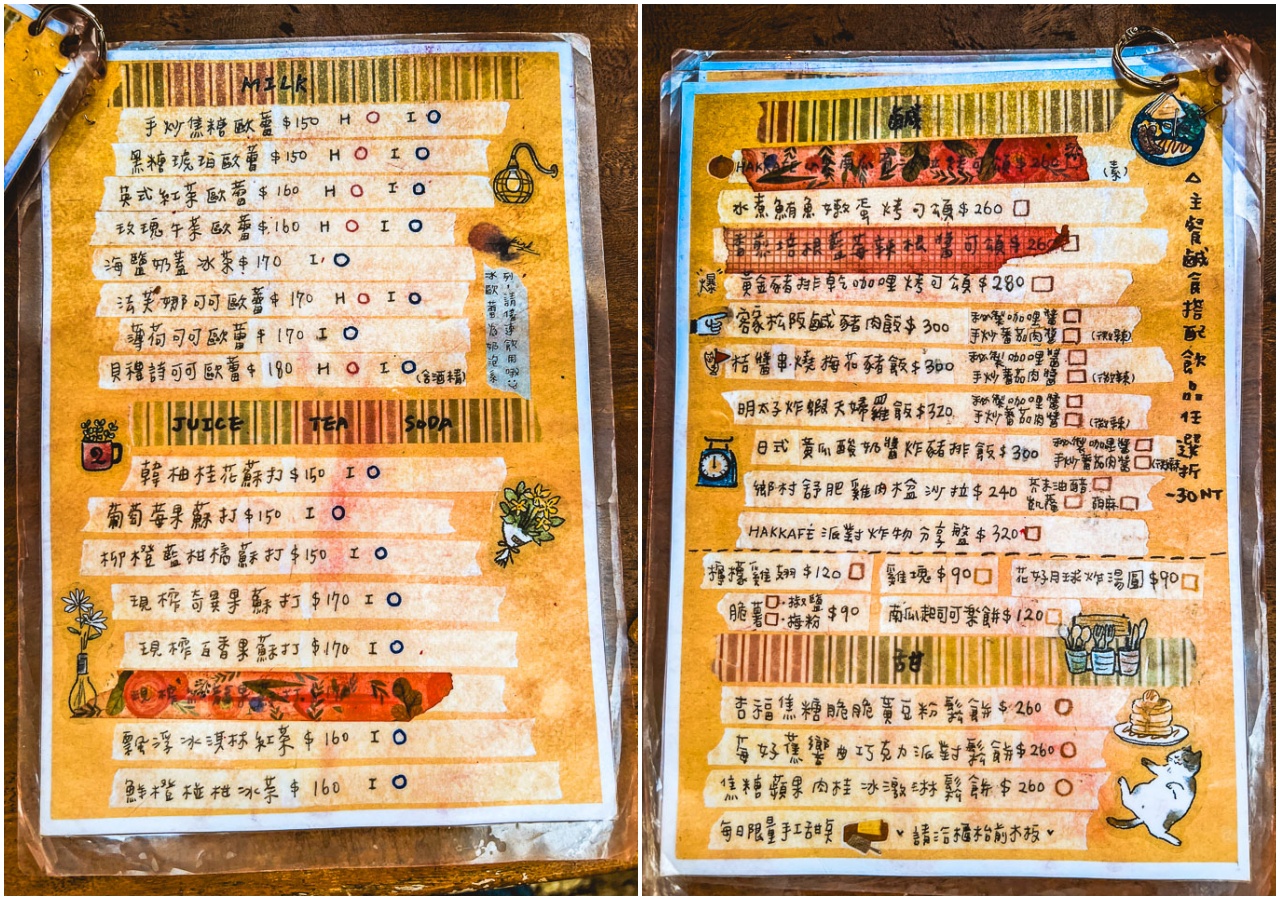 MILK
手炒焦糖歐蕾 $150 H I
黑糖琥珀歐蕾 $150 H I
英式紅茶歐蕾 $160 H I
玫瑰午茶歐蕾 $160 H I
海鹽奶蓋冰茶 $170 I
法芙娜可可歐蕾 $170 H I
薄荷可可歐蕾 $170 I
貝禮詩可可歐蕾 $180 H I (含酒精)
冰歐蕾為奶泡系
列,請儘速飲用哦
JUICE TEA SODA
韓柚桂花蘇打 $150 I
葡萄莓果蘇打 $150 I
柳橙藍柑橘蘇打 $150 I
現榨奇異果蘇打 $170 I
現榨百香果蘇打 $170 I
飄浮冰淇淋紅茶 $160 I
鮮橙椪柑冰茶 $160 I
鹹
HAKKAFE
$260
(素)
水煮鮪魚嫩蛋烤可頌 $260
香煎培根藍莓辣根醬可頌 $260
爆 黃金豬排乾咖哩烤可頌 $280
客家松阪鹹豬肉飯 $300 秘製咖哩醬
手炒番茄肉醬 (微辣)
桔醬串燒梅花豬飯 $300 秘製咖哩醬
手炒番茄肉醬 (微辣)
明太子炸蝦天婦羅飯 $320 秘製咖哩醬
手炒番茄肉醬 (微辣)
日式黃瓜酸奶醬炸豬排飯 $300 秘製咖哩醬
手炒番茄肉醬 (微辣)
鄉村舒肥雞肉盆沙拉 $240 芥末油醋
凱薩 胡麻
HAKKAFE 派對炸物分享盤 $320
△主餐鹹食搭配飲品任選折
-30NT
檸檬雞翅 $120 雞塊 $90 花好月球炸湯圓 $90
脆薯 椒鹽 梅粉 $90 南瓜起司可樂餅 $120
甜
杏福焦糖脆脆黃豆粉鬆餅 $260
莓好蕉響曲巧克力派對鬆餅 $260
焦糖蘋果肉桂冰激淋鬆餅 $260
每日限量手工甜點 請洽櫃枱前木板